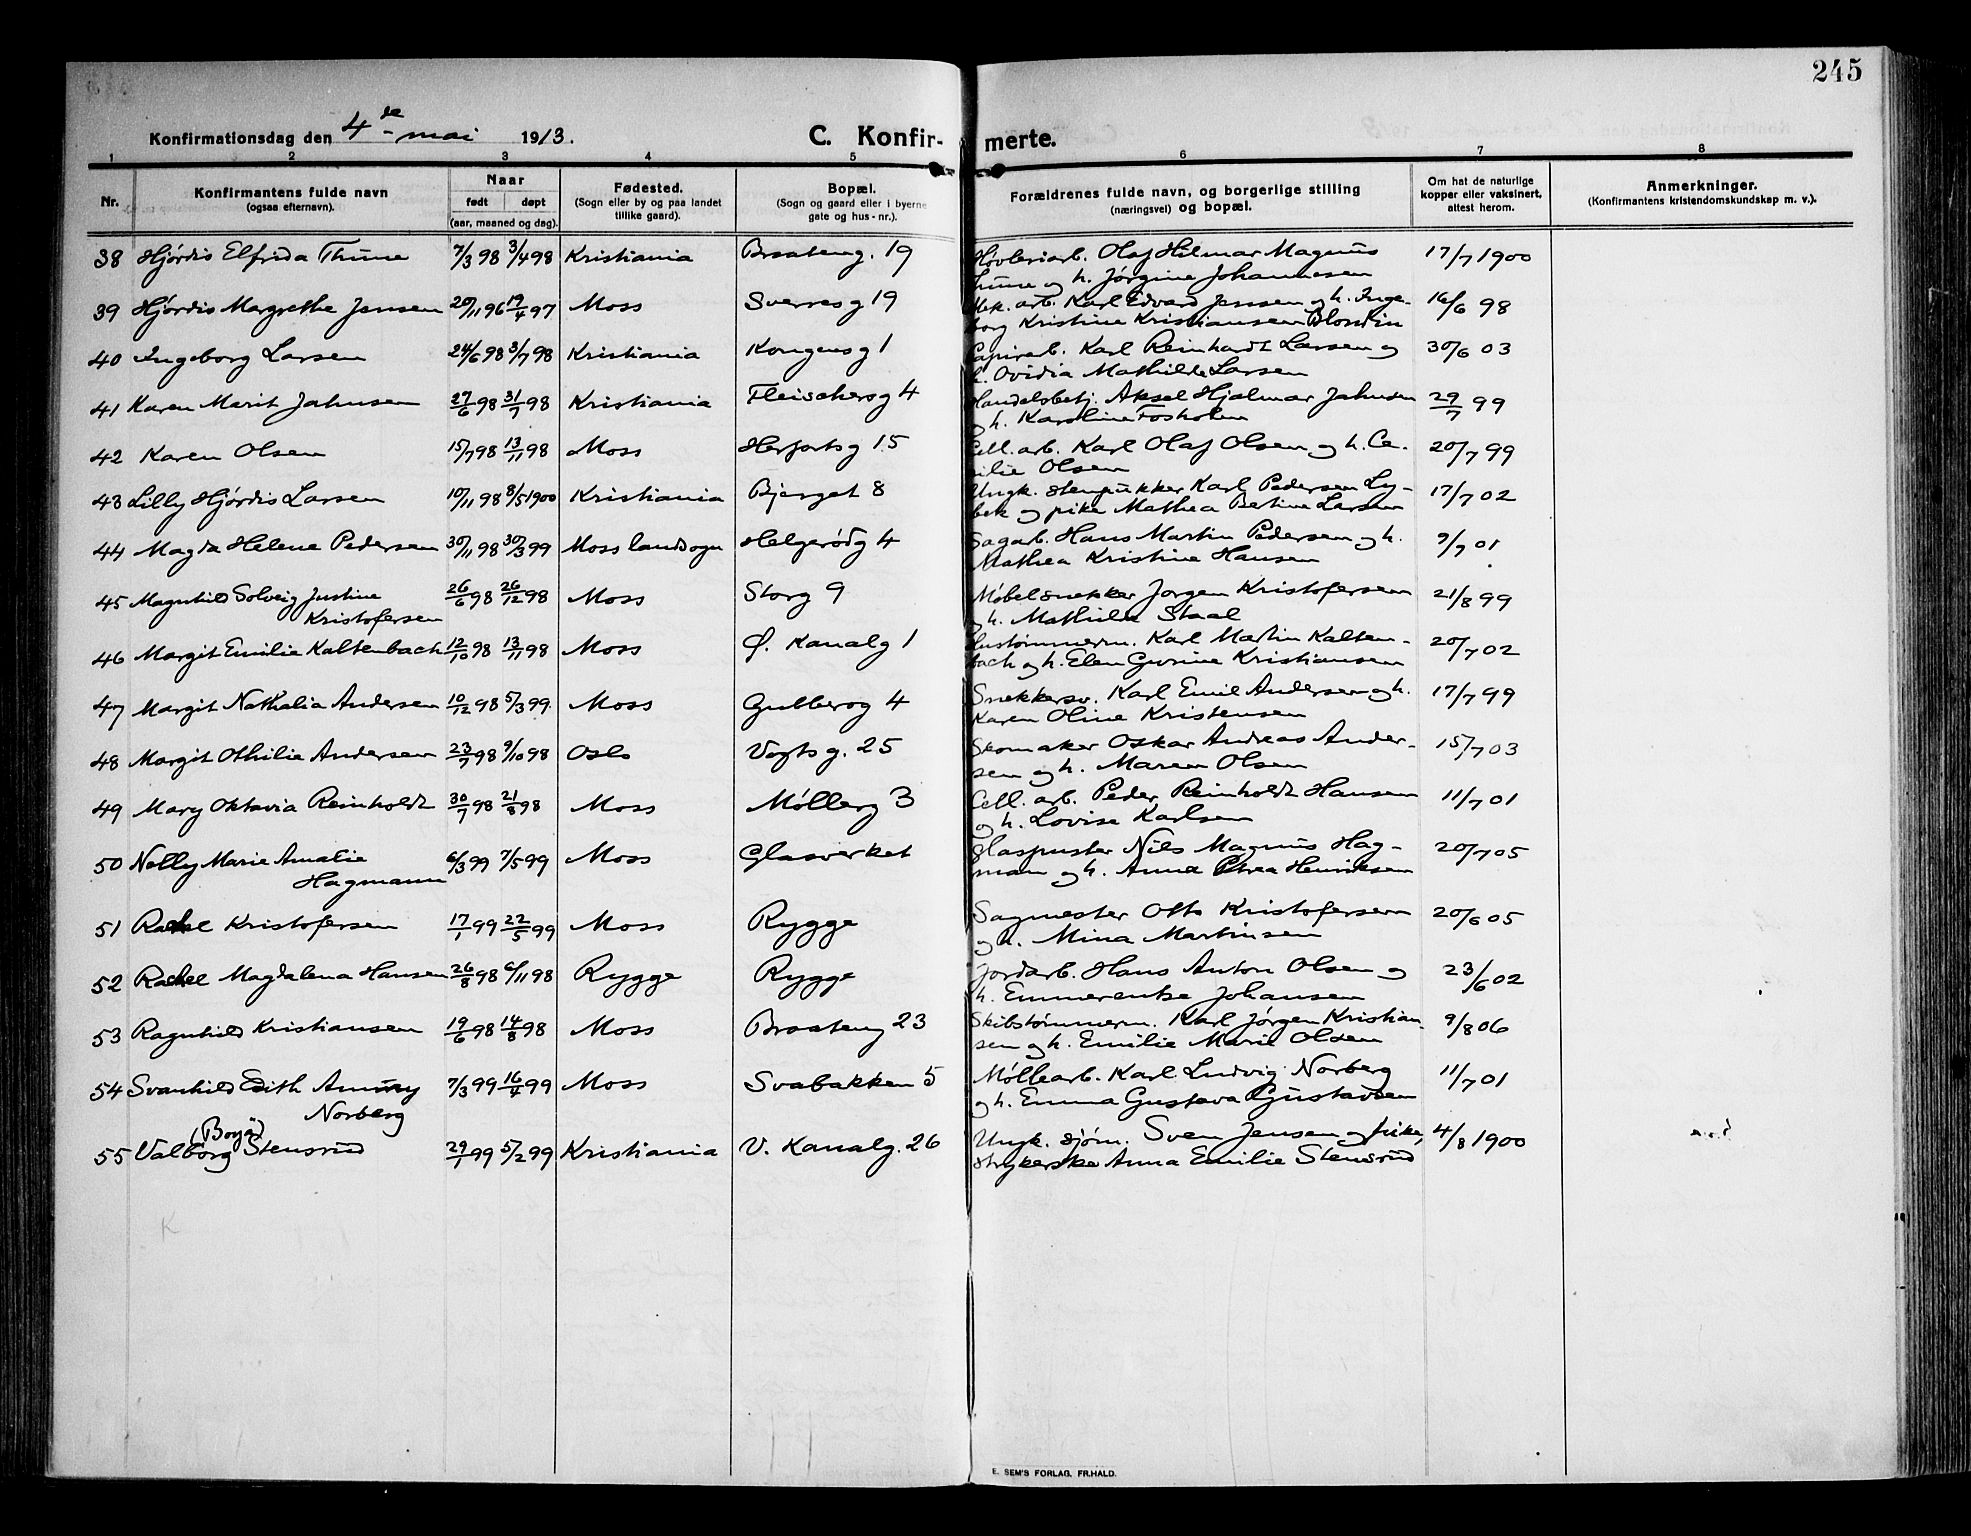 245
Konfirmationsdag den 4de mai 1913.
C. Konfir- merte.
1 2 3 4 5 6 7 8
Nr.
Konfirmantens fulde navn
(ogsaa efternavn).
Naar
født døpt
(aar, maaned og dag).
Fødested.
(Sogn eller by og paa landet
tillike gaard).
Bopæl.
(Sogn og gaard eller i byerne
gate og hus-nr.).
Forældrenes fulde navn, og borgerlige stilling
(næringsvei) og bopæl.
Om hat de naturlige
kopper eller vaksinert,
attest herom.
Anmerkninger.
(Konfirmantens kristendomskundskap m. v.).
38 Hjørdis Elfrida Thune 7/3 98 3/4 98 Kristiania Braateng. 19 Høvleriarb. Olaf Hilmar Magnus 17/7 1900
Thune og h. Jørgine Johannesen
39 Hjørdis Margrethe Jensen 20/11 96 19/4 97 Moss Sverresg 19 Mek. arb. Karl Edvard Jensen og h. Inge- 16/6 98
borg Kristine Kristiansen Blondin
40 Ingeborg Larsen 24/6 98 3/7 98 Kristiania Kongensg 1 Papirarb. Karl Reinhardt Larsen og 30/6 03
h. Ovidia Mathilde Larsen
41 Karen Marit Jahnsen 27/6 98 31/7 98 Kristiania Fleischersg 4 Handelsbetj. Aksel Hjalmar Jahnsen 29/7 99
og h. Karoline Fosholm
42 Karen Olsen 15/7 98 13/11 98 Moss Herfortsg 15 Cell. arb. Karl Olaf Olsen og h. Ce-
20/7 99
cilie Olsen
43 Lilly Hjørdis Larsen 10/11 98 8/5 1900 Kristiania Bjerget 8 Ungk. stenpukker Karl Pedersen Ly- 17/7 02
bek og pike Mathea Betine Larsen
44 Magda Helene Pedersen 30/11 98 30/3 99 Moss landsogn Helgerødg 4 Sagarb. Hans Martin Pedersen og h. 9/7 01
Mathea Kristine Hansen
45 Magnhild Solveig Justine 26/6 98 26/12 98 Moss Storg 9 Møbelsnekker Jørgen Kristofersen 21/8 99
Kristofersen og h. Mathilde Staal
46 Margit Emilie Kaltenbach 12/10 98 13/11 98 Moss Ø. Kanalg 1 Hustømmerm. Karl Martin Kalten- 20/7 02
bach og h. Elen Gurine Kristiansen
47 Margit Nathalia Andersen 10/12 98 5/3 99. Moss Gulberog 4 Snekkersv. Karl Emil Andersen og h. 17/7 99
Karen Oline Kristensen
48 Margit Othilie Andersen 23/7 98 9/10 98 Oslo Vogtsg. 25 Skomaker Oskar Andreas Ander- 15/7 03
sen og h. Maren Olsen
49 Mary Oktavia Reinholdt 30/7 98 21/8 98 Moss Møllerg 3 Cell. arb. Peder Reinholdt Hansen 11/7 01
og h. Lovise Karlsen
50 Nelly Marie Amalie 6/3 99 7/5 99 Moss Glasverket Glaspuster Nils Magnus Hag- 20/7 05
Hagmann man og h. Anna Petrea Henriksen
51 Rakel Kristofersen 17/1 99 22/5 99 Moss Rygge Sagmester Otto Kristofersen 20/6 05
og h. Mina Martinsen
52 Rakel Magdalena Hansen 26/8 98 6/11 98 Rygge Rygge Jordarb. Hans Anton Olsen og 23/6 02
h. Emmerentse Johansen
53 Ragnhild Kristiansen 19/6 98 14/8 98 Moss Braateng 23 Skibstømmerm. Karl Jørgen Kristian- 9/8 06
sen og h. Emilie Marie Olsen
54 Svanhild Edith Ammy 7/3 99 16/4 99 Moss Svabakken 5 Møllearb. Karl Ludvig Norberg 11/7 01
Norberg og h. Emma Gustava Gustavsen
(Borja)
55 Valborg Stensrud 29/1 99 5/2 99 Kristiania V. Kanalg. 26 Ungk. sjøm. Sven Jensen og pike, 4/8 1900
strykerske Anna Emilie Stensrud
E. SEM'S FORLAG, FR.HALD.